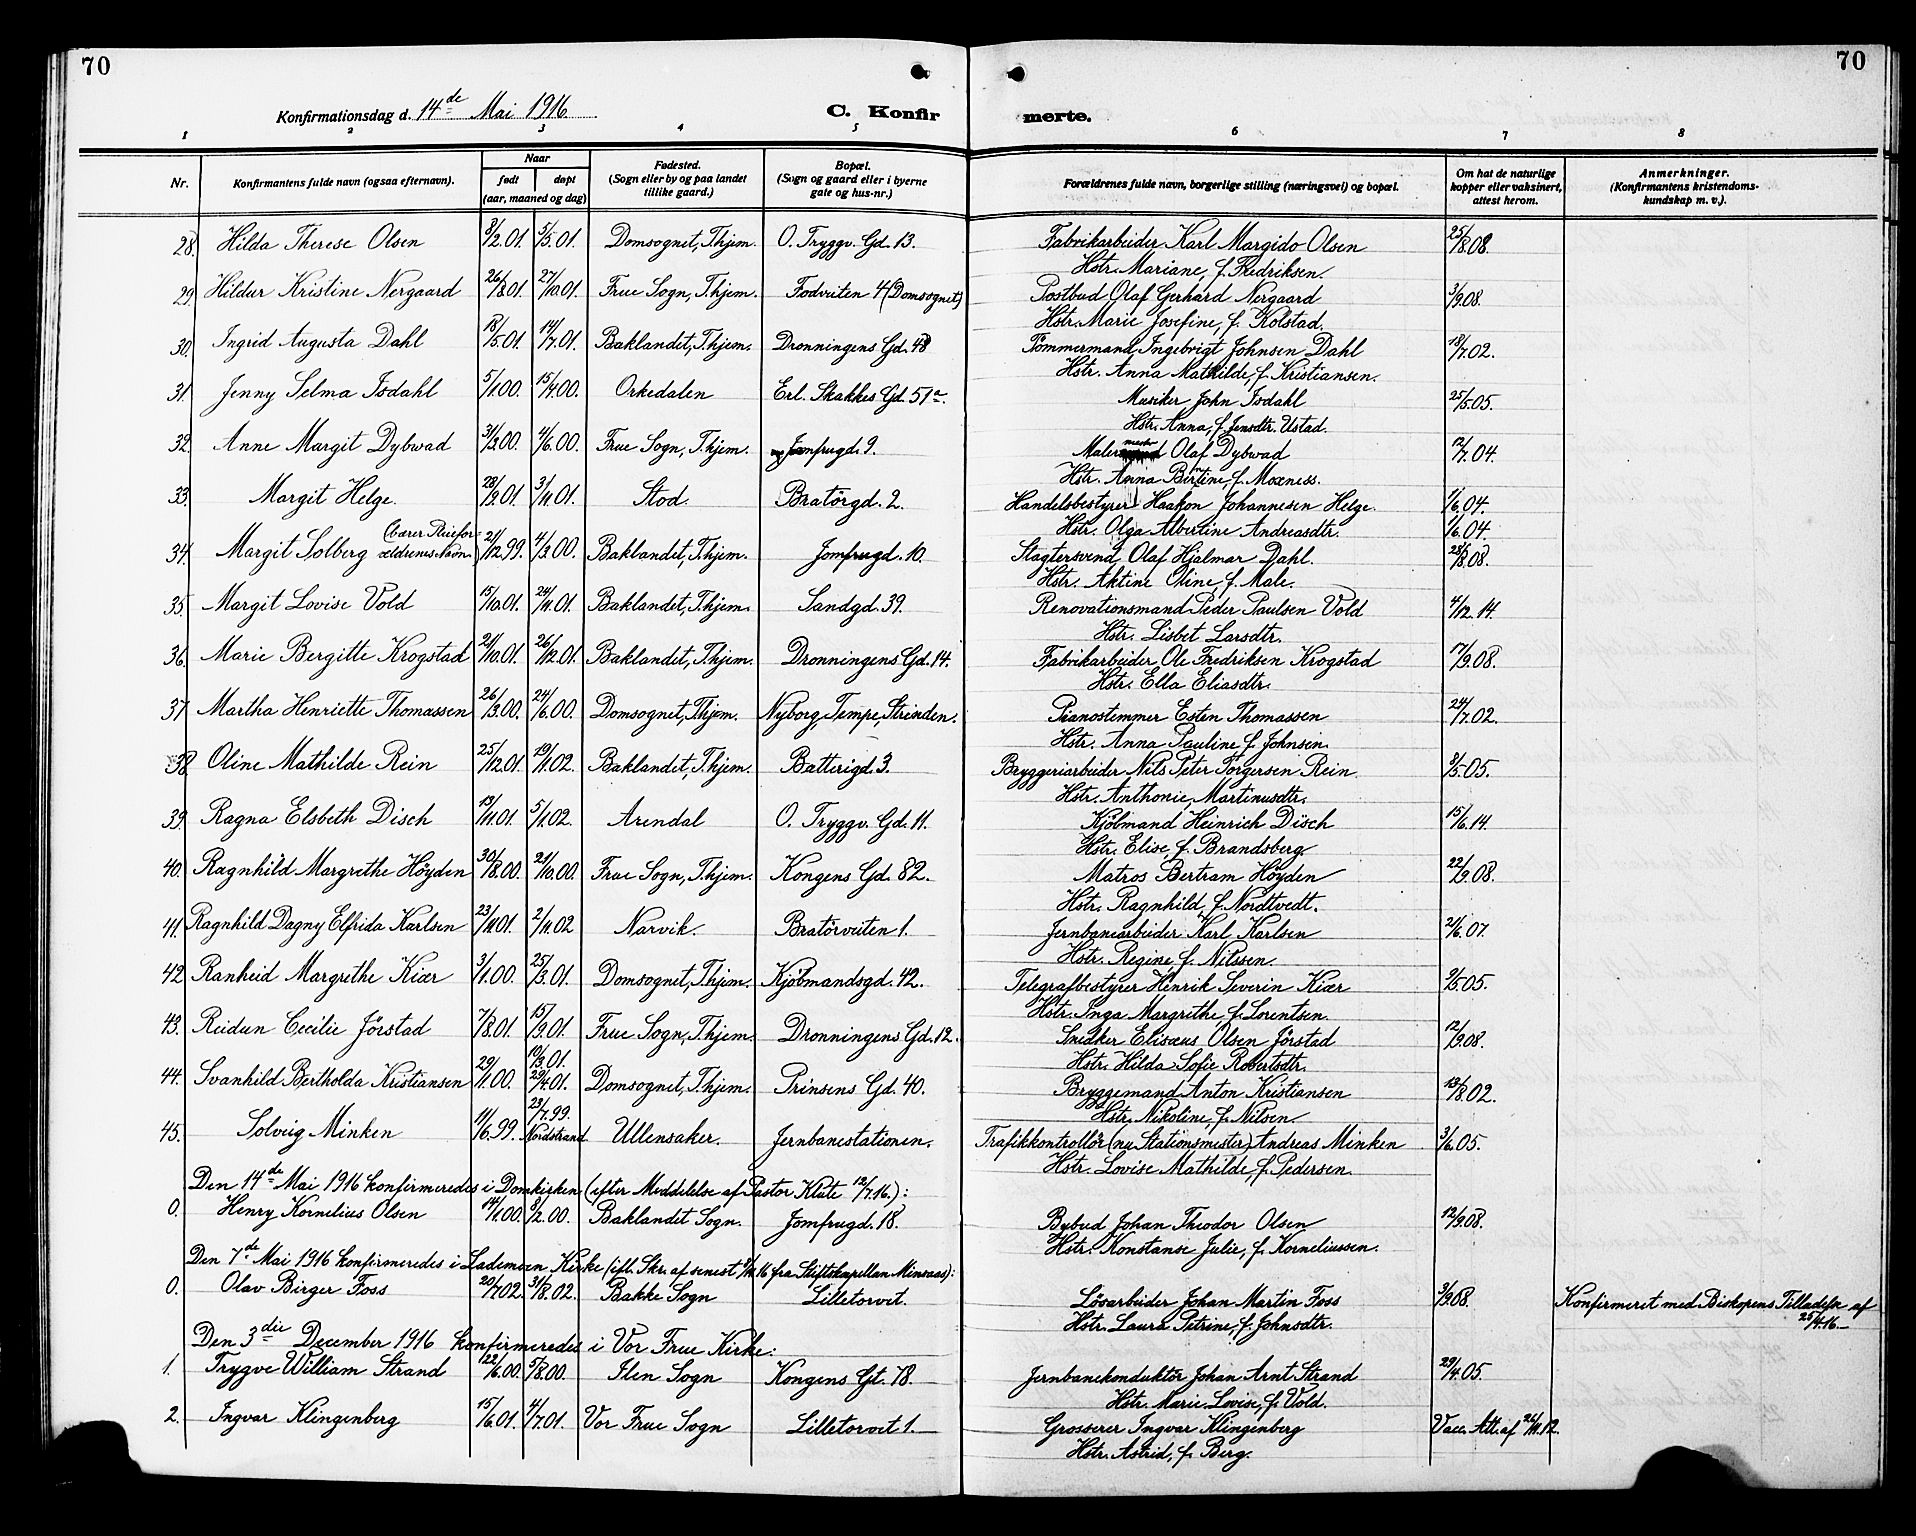 70
70
Konfirmationsdag d. 14de Mai 1916.
C. Konfirmerte.
1 2 3 4 5 6 7 8
Nr. Konfirmantens fulde navn (ogsaa efternavn). Naar født døpt (aar, maaned og dag) Fødested. (Sogn eller by og paa landet tillike gaard.) Bopæl. (Sogn og gaard eller i byerne gate og hus-nr.) Forældrenes fulde navn, borgerlige stilling (næringsvei) og bopæl. Om hat de naturlige kopper eller vaksinert, attest herom. Anmerkninger. (Konfirmantens kristendomskundskap m. v.).
28. Hilda Therese Olsen 3/2.01. 3/5.01. Domsognet, Thjem. O. Tryggv. Gd. 13. Fabrikarbeider Karl Margido Olsen 25/8.08.
Hstr. Mariane, f. Fredriksen.
29. Hildur Kristine Nergaard 26/8.01. 27/10.01. Frue Sogn, T.hjem. Fodviten 4 (Domsognet) Postbud Olaf Gerhard Nergaard 3/9.08.
Hstr. Marie Josefine, f. Kolstad.
30. Ingrid Augusta Dahl 18/5.01. 14/7.01. Baklandet, T.hjem. Dronningens Gd. 48 Tömmermand Ingebrigt Johnsen Dahl 18/7.02.
Hstr. Anna Mathilde, f. Kristiansen.
31. Jenny Selma Isdahl 5/1.00. 15/4.00. Orkedalen Erl. Skakkes Gd. 51a. Musiker John Isdahl 25/5.05.
Hstr. Anna, f. Jensdtr. Ustad.
32. Anne Margit Dybwad 31/3.00. 4/6.00. Frue Sogn, T.hjem. Jomfrugd. 9. Malermester Olaf Dybwad 12/7.04.
Hstr. Anna Bertine, f. Moxness.
33. Margit Helge. 28/9.01. 3/11.01. Stod. Bratörgd. 2. Handelsbestyrer Haakon Johannesen Helge. 1/6.04.
Hstr. Olga Albertine Andreasdtr. 1/6.04.
34. Margit Solberg (bærer Pleieforældrenes Navn.) 21/12.99. 4/3.00. Baklandet, T.hjem. Jomfrugd. 10. Slagtersvend Olaf Hjalmar Dahl. 25/8.08.
Hstr. Aktine Oline, f. Male.
35. Margit Lovise Vold 15/10.01. 24/11.01. Baklandet, T.hjem. Sandgd. 39. Renovationsmand Peder Paulsen Vold 4/12.14.
Hstr. Lisbet Larsdtr.
36. Marie Bergitte Krogstad 21/10.01. 26/12.01. Baklandet, T.hjem. Dronningens Gd. 14. Fabrikarbeider Ole Fredriksen Krogstad 17/9.08.
Hstr. Ella Eliasdtr.
37. Martha Henriette Thomassen 26/3.00. 24/6.00. Domsognet, Thjem. Nyborg, Tempe, Strinden. Pianostemmer Esten Thomassen 24/7.02.
Hstr. Anna Pauline f. Johnsen.
38. Oline Mathilde Rein 25/12.01. 19/1.02. Baklandet, T.hjem. Batterigd. 3. Bryggeriarbeider Nils Peter Torgersen Rein 3/5.05.
Hstr. Anthonie, Martinusdtr.
39. Ragna Elsbeth Disch 19/11.01. 5/1.02. Arendal O. Tryggv. Gd. 11. Kjöbmand Heinrich Disch 15/6.14.
Hstr. Elise, f. Brandsberg
40. Ragnhild Margrethe Höyden 30/8.00. 21/10.00. Frue Sogn, T.hjem. Kongens Gd. 82. Matros Bertram Höyden 22/9.08.
Hstr. Ragnhild, f. Nordtvedt.
41. Ragnhild Dagny Elfrida Karlsen 23/11.01. 2/11.02 Narvik. Bratörveiten 1. Jernbanearbeider Karl Karlsen 21/6.07.
Hstr. Regine, f. Nilssen.
42. Ranheid Margrethe Kiær 3/1.00. 25/3.01. Domsognet, T.hjem. Kjöbmandsgd. 42. Telegrafbestyrer Henrik Severin Kiær 9/5.05.
Hstr. Inga Margrethe, f. Lorentsen.
43. Reidun Cecilie Jörstad 7/8.01. 15/9.01. Frue Sogn, T.hjem. Dronningens Gd. 12. Snedker Elisæus Olsen Jörstad 12/9.08.
Hstr. Hilda Sofie Robertsdtr.
44. Svanhild Bertholda Kristiansen 29/1.00. 10/3.01. 29/4.01. Domsognet, T.hjem. Prinsens Gd. 40. Bryggemand Anton Kristiansen 19/8.02.
Hstr. Nikoline, f. Nilsen.
45. Solveig Minken 11/6.99. 23/7.99. Nordstrand Ullensaker. Jernbanestationen. Trafikkontrollör (nu Stationsmester) Andreas Minken 3/6.05.
Hstr. Lovise Mathilde, f. Pedersen.
Den 14de Mai 1916 konfirmeredes i Domkirken (efter Meddelelse af Pastor Klüte 12/7.16.):
0. Henry Kornelius Olsen 14/1.00. 9/2.00. Baklandet Sogn. Jomfrugd. 18. Bybud Johan Theodor Olsen 12/9.08.
Hstr. Konstanse Julie, f. Korneliussen.
Den 7de Mai 1916 konfirmeredes i Lademoen Kirke (ifl. Skr. af senest 9/11.16 fra Stiftskapellan Minsaas):
0. Olav Birger Foss 20/7.02. 31/8.02. Bakke Sogn Lilletorvet. Lösarbeider Johan Martin Foss 3/9.08. Konfirmeret med Biskopens Tilladelse af 25/4.16.
Hstr. Laura Petrine, f. Johnsdtr.
Den 3die December 1916 konfirmeredes i Vor Frue Kirke:
1. Trygve William Strand 22/6.00. 5/8.00. Ilen Sogn Kongens Gt. 78. Jernbanekonduktör Johan Arnt Strand 29/4.05.
Hstr. Marie Lovise, f. Vold.
2. Ingvar Klingenberg 15/6.01. 4/7.01. Vor Frue Sogn Lilletorvet 1. Grosserer Ingvar Klingenberg Vacc. Att. af 26/11.12.
Hstr. Astrid, f. Berg.